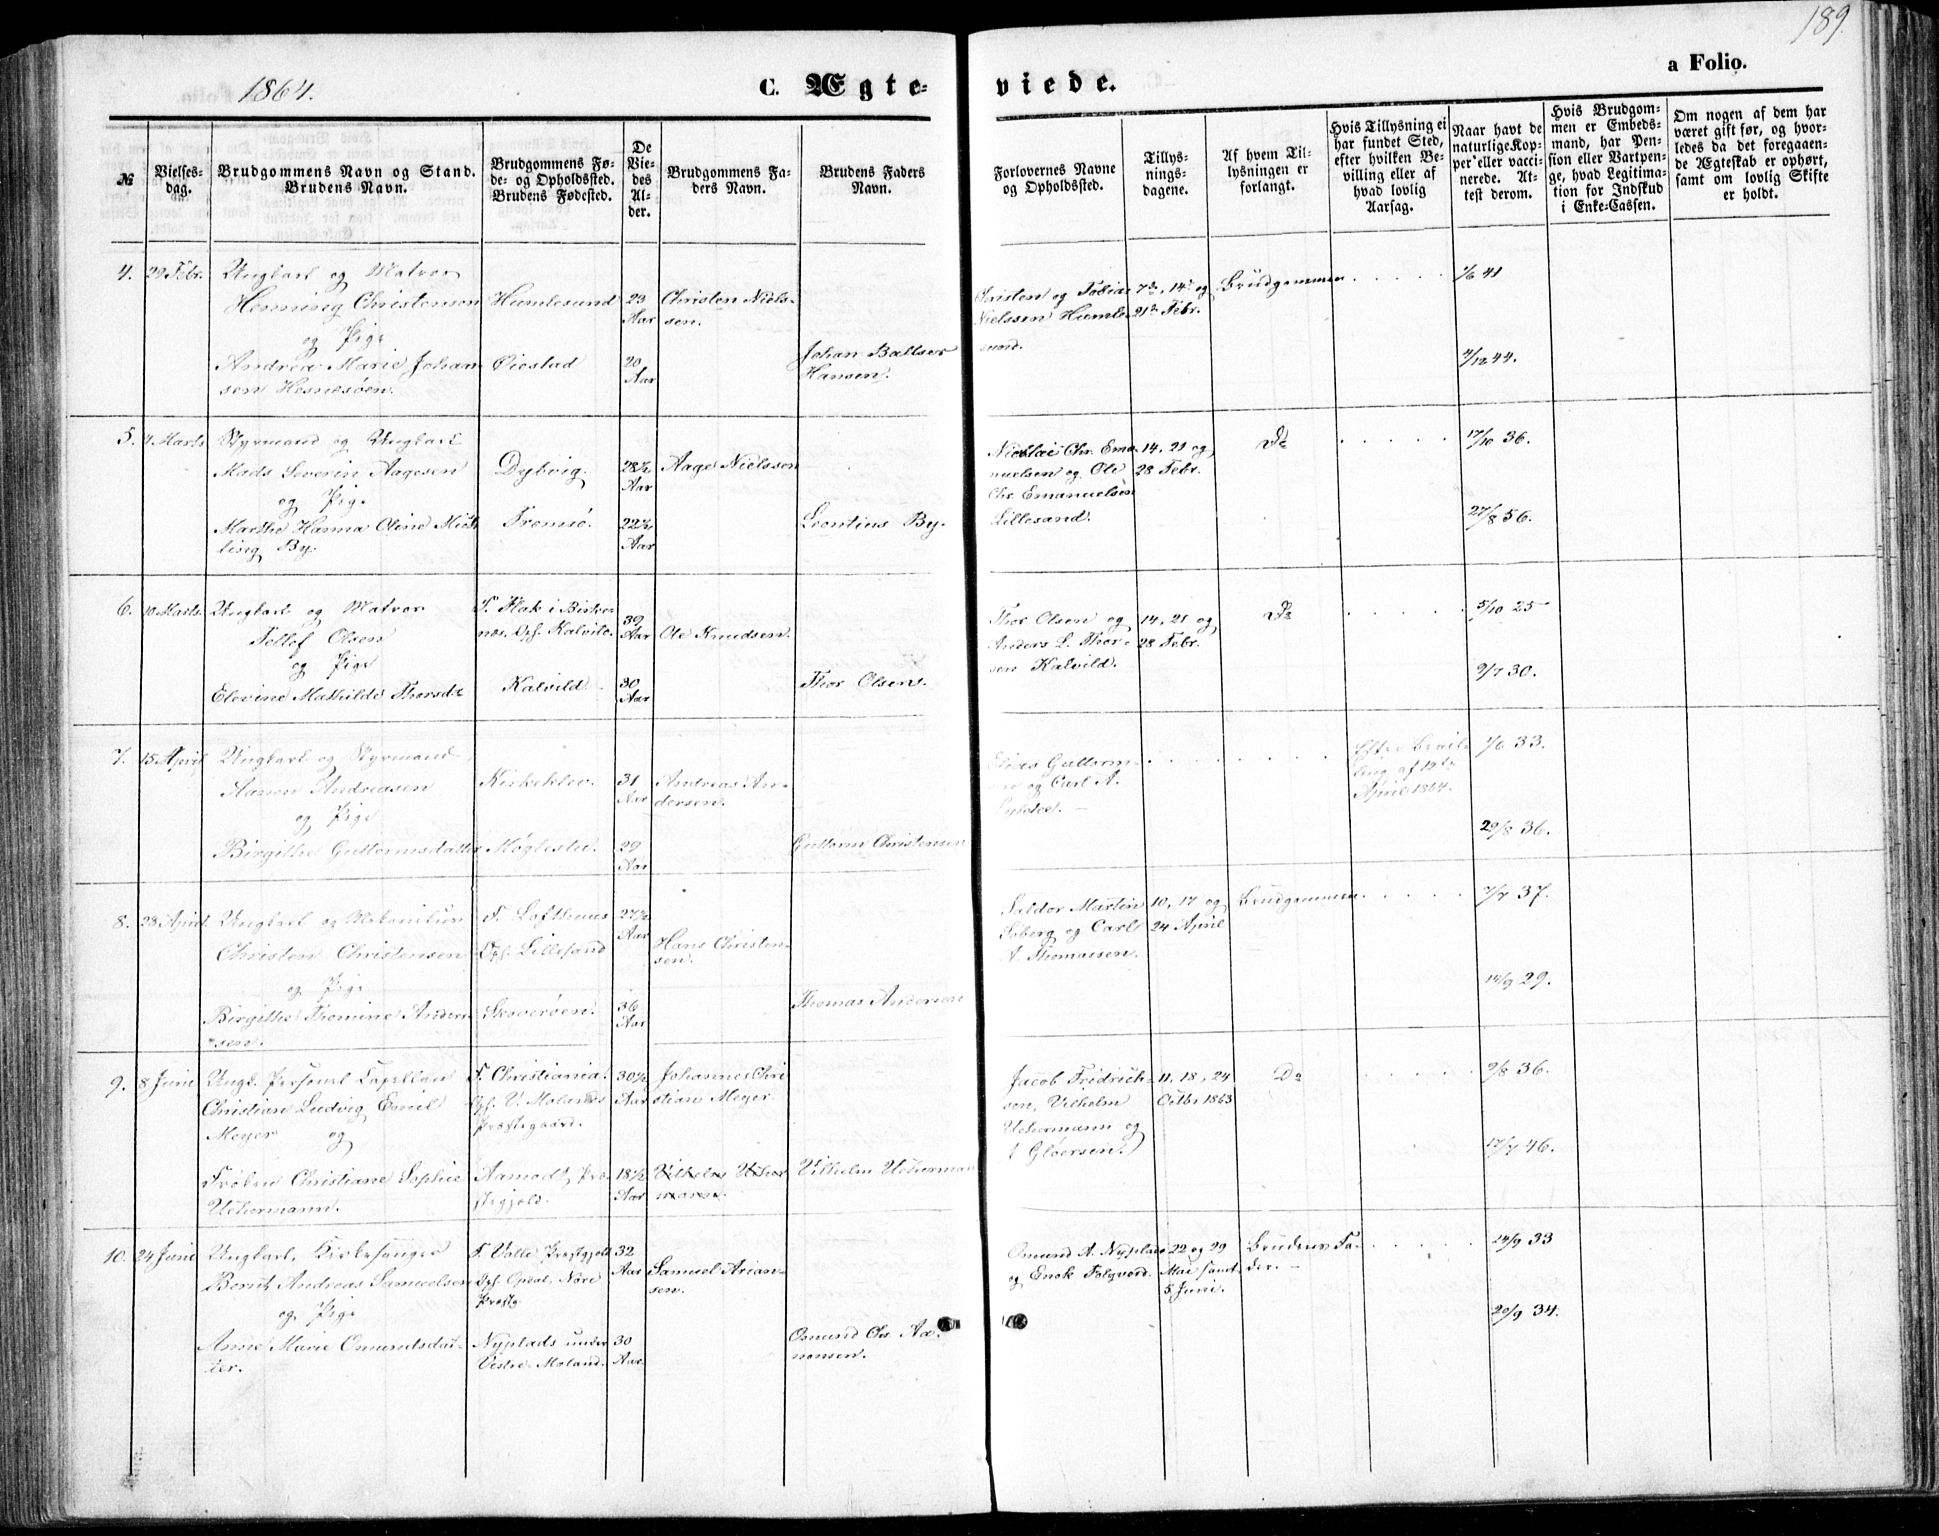 189.
1864.
C. Ægte-
viede.
a Folio.
№
Vielses-
dag.
Brudgommens Navn og Stand.
Brudens Navn.
Brudgommens Fø-
de- og Opholdssted.
Brudens Fødested.
De
Vie-
des
Al-
der.
Brudgommens Fa-
ders Navn.
Brudens Faders
Navn.
Forlovernes Navne
og Opholdssted.
Tillys-
nings-
dagene.
Af hvem Til-
lysningen er
forlangt.
Hvis Tillysning ei
har fundet Sted,
efter hvilken Be-
villing eller af
hvad lovlig
Aarsag.
Naar havt de
naturlige Kop-
per eller vacci-
nerede. At-
test derom.
Hvis Brudgom-
men er Embeds-
mand, har Pen-
sion eller Vartpen-
ge, hvad Legitima-
tion for Indskud
i Enke-Cassen.
Om nogen af dem har
været gift før, og hvor-
ledes da det foregaaen-
de Ægteskab er ophørt,
samt om lovlig Skifte
er holdt.
4.
29 Febr.
Ungkarl og Matros
Henning Christensen
og Pige
Andrea Marie Johan
sen Hesnesøen.
Humlesund
Øiestad
23
Aar
20
Aar
Christen Niels-
sen.
Johan Baltser
Hansen.
Christen og Tobias
Nielssen Humle-
sund.
7de, 14de og
21de Febr.
Brudgommen
1/6 41
4/12 44.
5.
4 Marts
Styrmand og Ungkarl
Mads Severin Aagesen
og Pige
Marthe Hanna Oline
ling By.
Dybvig
Tromsø.
28½
Aar
22½
Aar
Aage Nielssen
Leontius By.
Nicolai Chr. Ema-
nuelsen og Ole
Chr. Emanuelsen
Lillesand.
14, 21 og
28 Febr.
Do
17/10 36.
27/8 56.
6.
10 Marts.
Ungkarl og Matros
Tellef Olsen
og Pige
Elevine Mathilde Thorsdt
F. Flak i Birke-
næs. Opf. Kalvild.
Kalvild
39
Aar
30
Aar
Ole Knudsen.
Thor Olsen.
Thor Olsen og
Anders L. Thor-
sen Kalvild.
14, 21 og
28 Febr.
Do
5/10 25
9/7 30.
7.
15 April
Ungkarl og Styrmand
Aanon Andreasen
og Pige
Birgithe Guttormsdatter
Kirkekleo.
Møglestu.
31
Aar
29
Aar
Andreas An-
dersen.
Guttorm Christensen
Guttorm-
og Carl A.
Efter Bevil-
ling af 12te
April 1864.
1/6 33.
29/8 36.
8.
28 April
Ungkarl og
Christen Christensen
og Pige
Birgithe Thomine Ander-
sen.
F. Lofthuus
Opf. Lillesand
Skoverøen.
27½
Aar
36
Aar
Hans Christen-
sen.
Thomas Andersen
Martin
og Carl
A. Thomassen.
10, 17 og
24 April
Brudgommen
7/7 37.
14/9 29.
9.
8 Juni
Ungk. Personel Capellan
Christian Ludvig Emil
Meyer og
Frøken Christiane Sophie
Uchermann.
F. Christiania.
Opf. V. Molands
Præstegaard.
Aamodt Præ-
stegjeld.
30½
Aar
18½
Aar
Johannes Chri
stian Meyer.
Vilhelm Ucher
mann.
Vilhelm Ucherman
Jacob Fridrich-
sen, Vilhelm
Uchermann og
Gløersen.
11, 18, 24
Octbr 1863
Do
9/8 36.
17/7 46.
10.
24 Juni
Ungkarl, Kirkesanger
Bernt Andreas Samuelsen
og Pige
Anne Marie Omundsdat-
ter.
F. Valle Præstgjeld
Opf. Opdal, Nore
Præstg.
Nyplads under
Vestre Moland.
32
Aar
30
Aar.
Samuel Arian-
sen.
Osmund Chr. Aa-
nonsen.
Omund A. Nyplads
og Enok
22 og 29
Mai samt
5 Juni.
Brudens Fa-
der.
24/9 33
20/9 34.